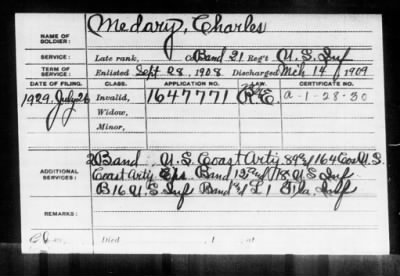 NAME OF SOLDIER: Medary, Charles
SERVICE: Late rank, Co Band 21 Reg't U.S. Inf
TERM OF SERVICE: Enlisted Sept 28, 1908 Discharged Mch 14, 1909
DATE OF FILING. CLASS. APPLICATION NO. LAW. CERTIFICATE NO.
1929 July 26 Invalid, 1647771 A-1-28-30
Widow,
Minor,
ADDITIONAL SERVICES:
2 Band U.S. Coast Arty 89 & 164 Cos U.S.
Coast Arty Band 12 & 18 U.S. Inf
B 16 U.S. Inf Band & L 1 Fla. Inf
REMARKS:
Died , 1 , at